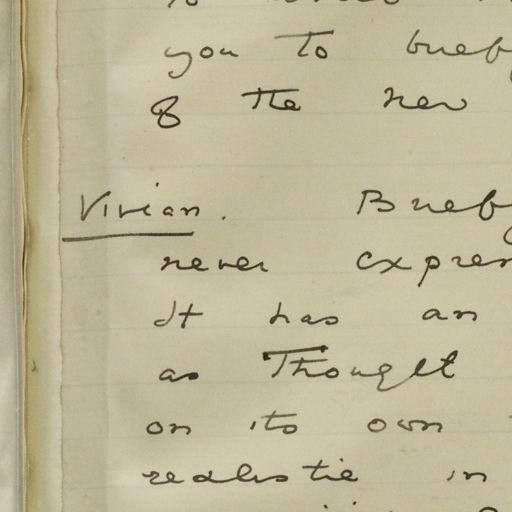 you to brief
of the new
Vivian. Brief
never expres
It has an
as Thought
on its own
realistic in